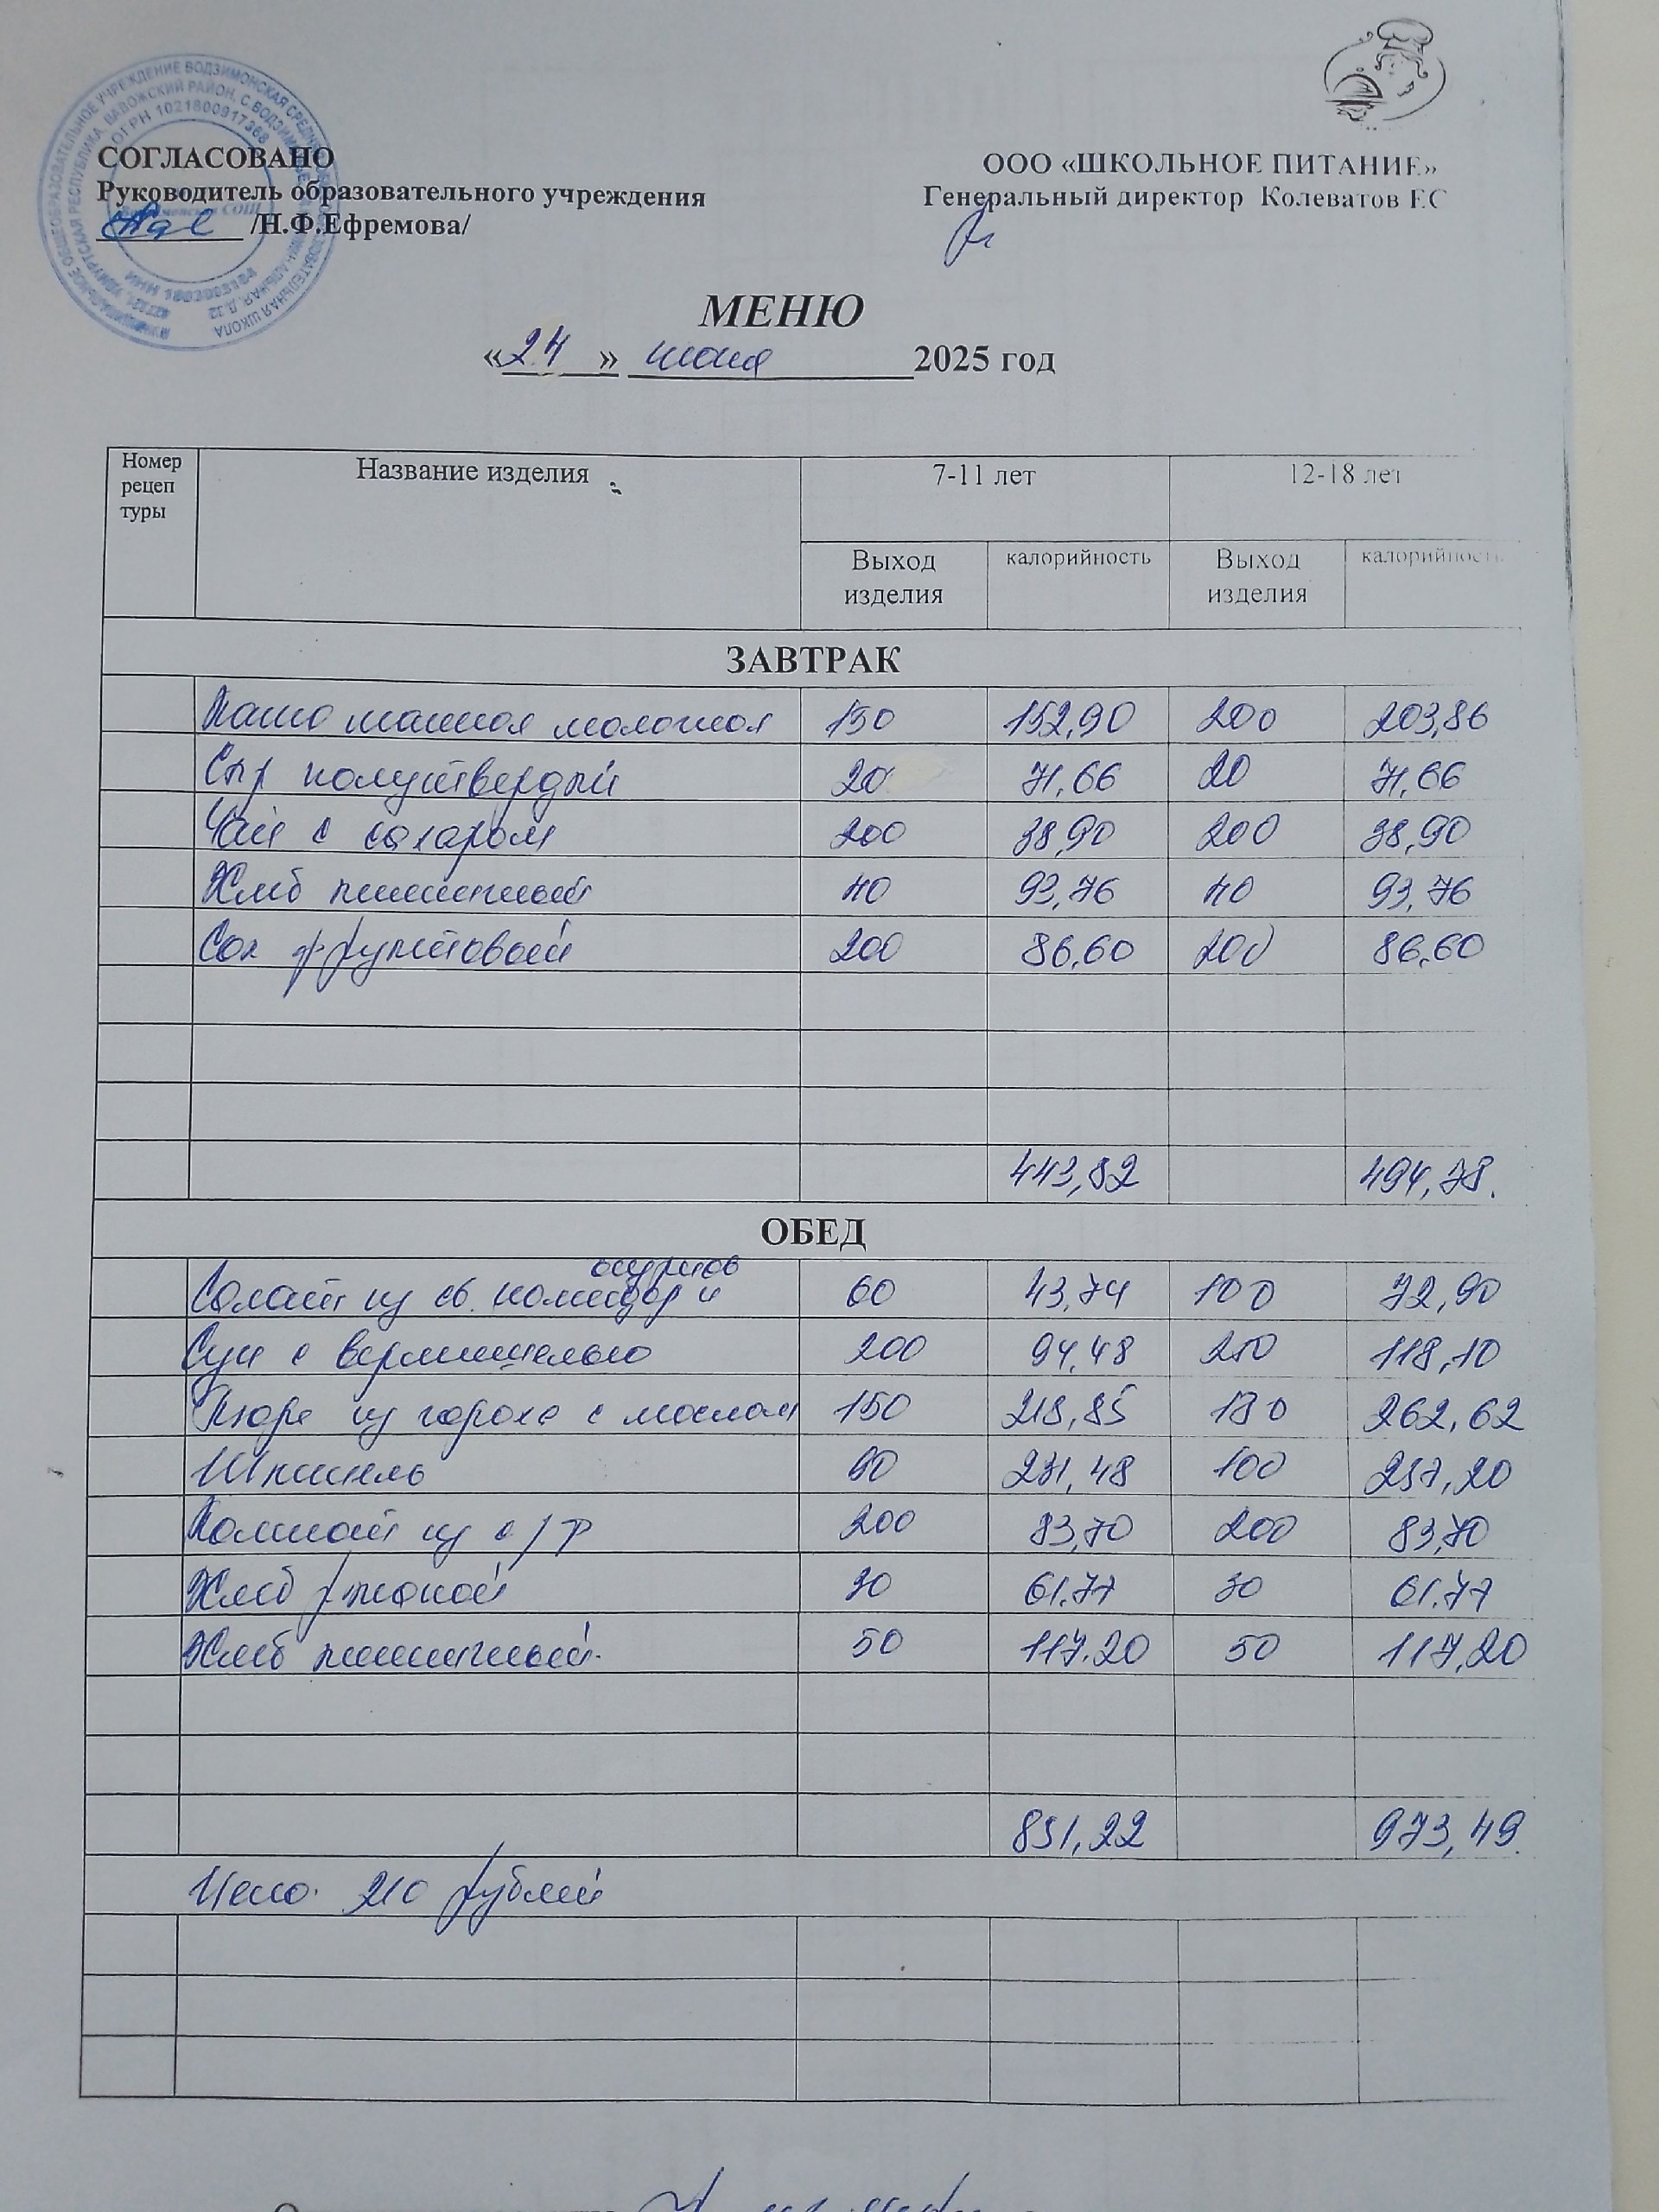 МУНИЦИПАЛЬНОЕ ОБЩЕОБРАЗОВАТЕЛЬНОЕ УЧРЕЖДЕНИЕ ВОДЗИМОНСКАЯ СРЕДНЯЯ ОБЩЕОБРАЗОВАТЕЛЬНАЯ ШКОЛА
УДМУРТСКАЯ РЕСПУБЛИКА, ВАВОЖСКИЙ РАЙОН, С.ВОДЗИМОНЬЕ
ОГРН 1021800917368
СОГЛАСОВАНО
Руководитель образовательного учреждения
/Н.Ф.Ефремова/
ООО «ШКОЛЬНОЕ ПИТАНИЕ»
Генеральный директор Колеватов Е С
МЕНЮ
«24» июня 2025 год
Номер рецеп туры Название изделия 7-11 лет 12-18 лет
Выход изделия калорийность Выход изделия калорийность
ЗАВТРАК
Каша манная молочная 150 152,90 200 203,86
Сыр полутвердый 20 71,66 20 71,66
Чай с сахаром 200 38,90 200 38,90
Хлеб пшеничный 40 93,76 40 93,76
Сок фруктовый 200 86,60 200 86,60
443,82 494,78.
ОБЕД
Салат из св. помидор и огурцов 60 43,74 100 72,90
Суп с вермишелью 200 94,48 250 118,10
Пюре из гороха с маслом 150 218,85 180 262,62
Шницель 90 231,48 100 257,20
Компот из с/ф 200 83,70 200 83,70
Хлеб ржаной 30 61.77 30 61.77
Хлеб пшеничный. 50 117.20 50 117,20
851,22 973,49.
Цена. 210 рублей